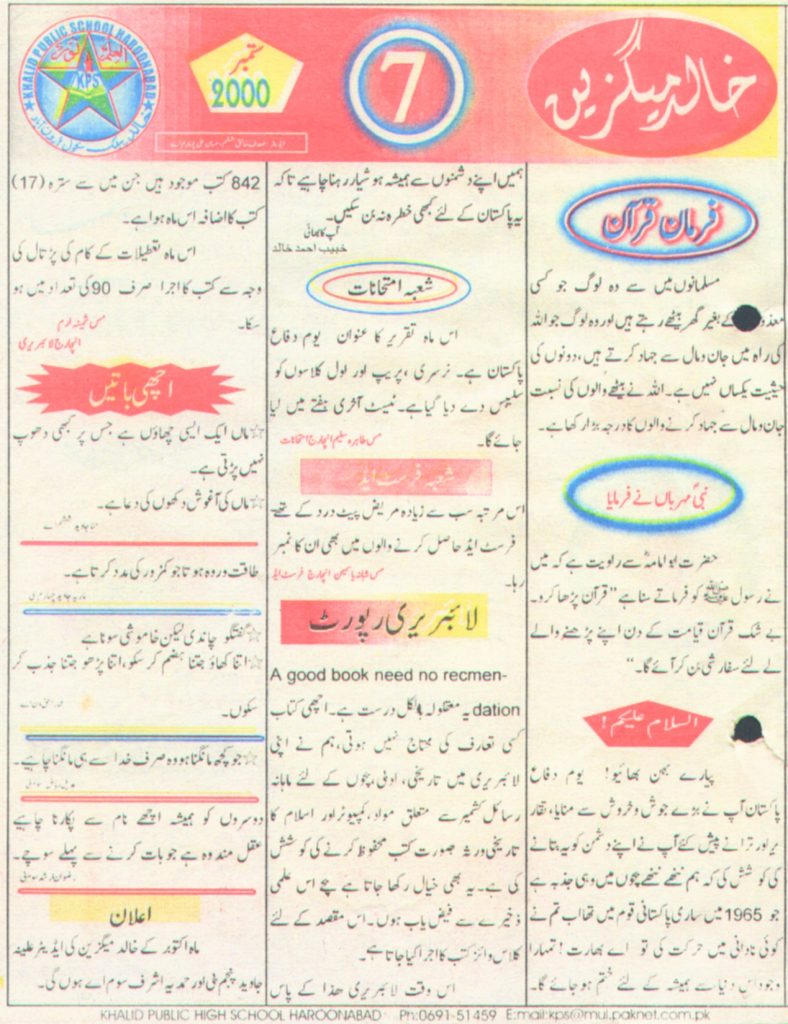 خالد میگزین
7
ستمبر
2000
KHALID PUBLIC SCHOOL HAROONABAD
KPS
فرمان قرآن
مسلمانوں میں سے وہ لوگ جو کسی
کے بغیر گھر بیٹھے رہتے ہیں اور وہ لوگ جو اللہ
کی راہ میں جان و مال سے جہاد کرتے ہیں، دونوں کی
حیثیت یکساں نہیں ہے۔ اللہ نے بیٹھے والوں کی نسبت
جان و مال سے جہاد کرنے والوں کا درجہ بڑا رکھا ہے۔
نبی مہرباں نے فرمایا
حضرت ابو امامہؓ سے راویت ہے کہ میں
نے رسول ﷺ کو فرماتے سنا ہے "قرآن پڑھا کرو۔
بے شک قرآن قیامت کے دن اپنے پڑھنے والے
کے لئے سفارشی بن کر آئے گا۔"
السلام علیکم!
پیارے بہن بھائیو! یوم دفاع
پاکستان آپ نے بڑے جوش و خروش سے منایا، تقار
یر اور ترانے پیش کئے آپ نے اپنے دشمن کو یہ بتانے
کی کوشش کی کہ ہم ننھے ننھے بچوں میں وہی جذبہ ہے
جو 1965 میں ساری پاکستانی قوم میں تھا اب تم نے
کوئی نادانی میں حرکت کی تو اے بھارت! تمہارا
وجود اس دنیا سے ہمیشہ کے لئے ختم ہو جائے گا۔
ہمیں اپنے دشمنوں سے ہمیشہ ہوشیار رہنا چاہیے تاکہ
یہ پاکستان کے لئے کبھی خطرہ نہ بن سکیں۔
آپ کا بھائی
خبیب احمد خالد
شعبہ امتحانات
اس ماہ تقریر کا عنوان یوم دفاع
پاکستان ہے۔ نرسری، پریپ اور اول کلاسوں کو
سلیبس دے دیا گیا ہے۔ ٹیسٹ آخری ہفتے میں لیا
جائے گا۔
مس طاہرہ سلیم انچارج امتحانات
شعبہ فرسٹ ایڈ
اس مرتبہ سب سے زیادہ مریض پیٹ درد کے تھے
فرسٹ ایڈ حاصل کرنے والوں میں بھی ان کا نمبر
رہا۔
مس شبانہ یاسمین انچارج فرسٹ ایڈ
لائبریری رپورٹ
A good book need no recmen-
dation یہ مقلولہ بالکل درست ہے۔ اچھی کتاب
کسی تعارف کی محتاج نہیں ہوتی، ہم نے اپنی
لائبریری میں تاریخی، ادبی، بچوں کے لئے ماہانہ
رسائل کشمیر سے متعلق مواد، کمپیوٹر اور اسلام کا
تاریخی ورثہ صورت کتب محفوظ کرنے کی کوشش
کی ہے۔ یہ بھی خیال رکھا جاتا ہے بچے اس علمی
ذخیرے سے فیض یاب ہوں۔ اس مقصد کے لئے
کلاس وائز کتب کا اجرا کیا جاتا ہے۔
اس وقت لائبریری ھذا کے پاس
842 کتب موجود ہیں جن میں سے سترہ (17)
کتب کا اضافہ اس ماہ ہوا ہے۔
اس ماہ تعطیلات کے کام کی پڑتال کی
وجہ سے کتب کا اجرا صرف 90 کی تعداد میں ہو
سکا۔
مس ثمینہ ارم
انچارج لائبریری
اچھی باتیں
☆ماں ایک ایسی چھاؤں ہے جس پر کبھی دھوپ
نہیں پڑتی ہے۔
☆ماں کی آغوش دکھوں کی دعا ہے۔
طاقت ور وہ ہوتا جو کمزور کی مدد کرتا ہے۔
☆گفتگو چاندی لیکن خاموشی سونا ہے
☆اتنا کھاؤ جتنا ہضم کر سکو، اتنا پڑھو جتنا جذب کر
سکوں۔
☆جو کچھ مانگنا ہو وہ صرف خدا سے ہی مانگنا چاہیے۔
دوسروں کو ہمیشہ اچھے نام سے پکارنا چاہیے
عقل مند وہ ہے جو بات کرنے سے پہلے سوچے۔
اعلان
ماہ اکتوبر کے خالد میگزین کی ایڈیٹر علیفہ
جاوید پنجم بی اور حمدیہ اشرف سوم اے ہوں گی۔
KHALID PUBLIC HIGH SCHOOL HAROONABAD Ph:0691-51459 E:mail:kps@mul.paknet.com.pk